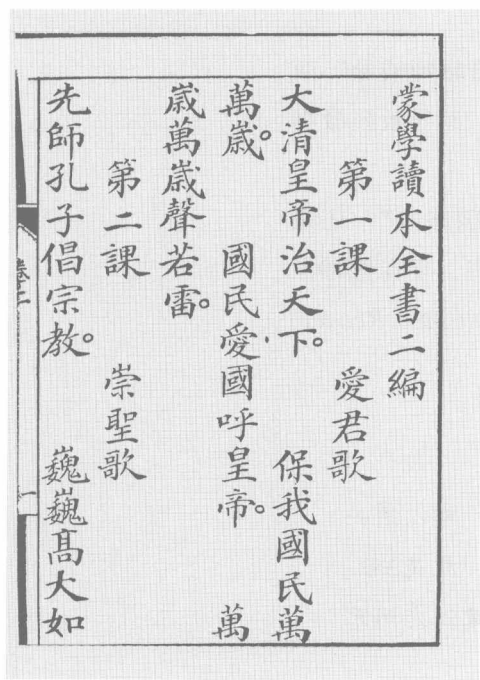 蒙學讀本全書二編
第一課　愛君歌
大清皇帝治天下。　保我國民萬
萬歲。　國民愛國呼皇帝。　萬
歲萬歲聲若雷。
第二課　崇聖歌
先師孔子倡宗教。　巍巍高大如